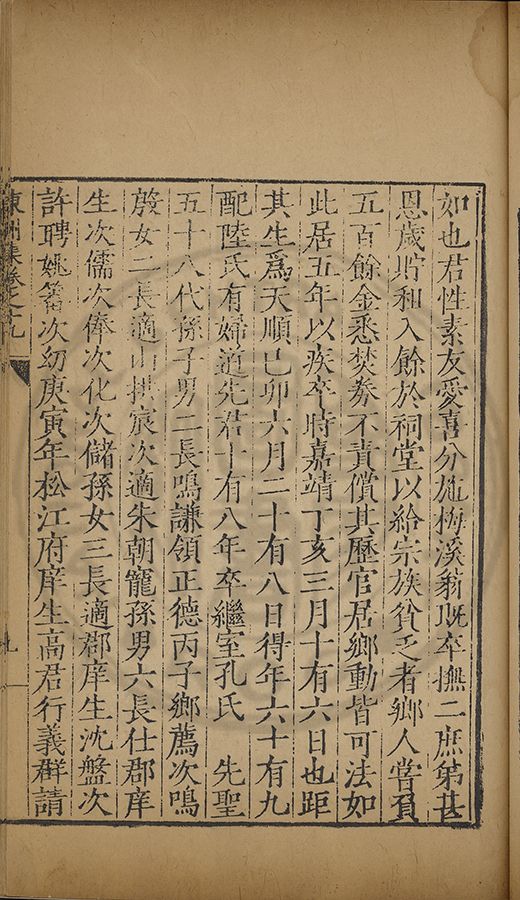 如也君性素友愛喜分施梅溪翁既卒撫二庶弟甚
恩歲貯租入餘於祠堂以給宗族貧乏者鄉人嘗負
五百餘金悉焚券不責償其歷官居鄉動皆可法如
此居五年以疾卒時嘉靖丁亥三月十有六日也距
其生爲天順己卯六月二十有八日得年六十有九
配陸氏有婦道先君十有八年卒繼室孔氏　先聖
五十八代孫子男二長鳴謙領正德丙子鄉薦次鳴
殷女二長適山拱宸次適朱朝寵孫男六長仕郡庠
生次儒次俸次化次儲孫女三長適郡庠生沈盤次
許聘姚籌次幼庚寅年松江府庠生高君行義群請
東洲集卷之十九
九